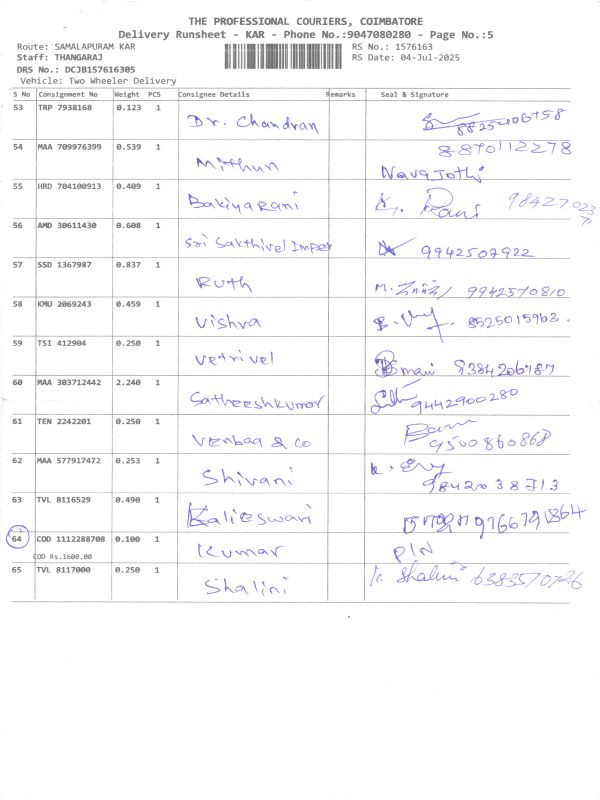 THE PROFESSIONAL COURIERS, COIMBATORE
Delivery Runsheet - KAR - Phone No.:9047080280 - Page No.:5
Route: SAMALAPURAM KAR RS No.: 1576163
Staff: THANGARAJ RS Date: 04-Jul-2025
DRS No.: DCJB157616305
Vehicle: Two Wheeler Delivery
S No Consignment No Weight PCS Consignee Details Remarks Seal & Signature
53 TRP 7938168 0.123 1 Dr. Chandran 8825406758
54 MAA 709976399 0.539 1 Mithun 8870112278 Navajothi
55 HRD 704100913 0.409 1 Bakiyarani K. Rani 98427023
56 AMD 30611430 0.608 1 Sri Sakthivel Impex 9942502922
57 SSD 1367987 0.837 1 Ruth 9942570810
58 KMU 2069243 0.459 1 Vishva 8525015963.
59 TSI 412904 0.250 1 Vetrivel mani 9384206787
60 MAA 303712442 2.240 1 Satheeshkumar 9442900280
61 TEN 2242201 0.250 1 Venbaa & co 9500860868
62 MAA 577917472 0.253 1 Shivani 9842038713
63 TVL 8116529 0.490 1 Kalieswari 9766791864
64 COD 1112288708 0.100 1 Kumar PIN
COD Rs.1600.00
65 TVL 8117000 0.250 1 Shalini K. Shalini 6383570726